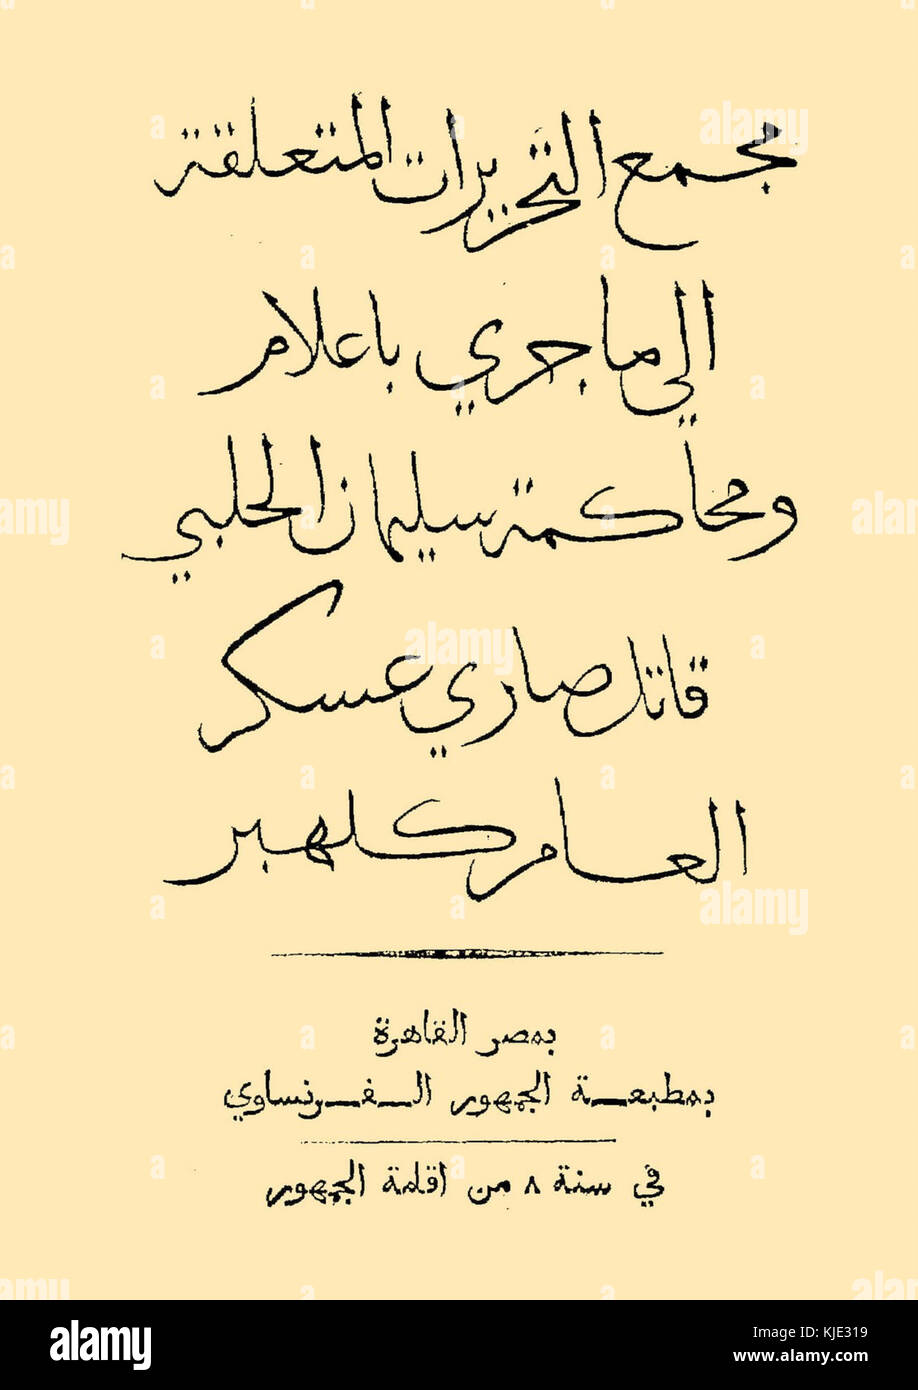 مجمع التحريرات المتعلقة
الي ماجري باعلام
ومحاكمة سليمان الحلبي
قاتل صاري عسكر
العام كلهبر
بمصر القاهرة
بمطبعة الجمهور الفرنساوي
في سنة ٨ من اقامة الجمهور
alamy
Image ID: KJE319
www.alamy.com